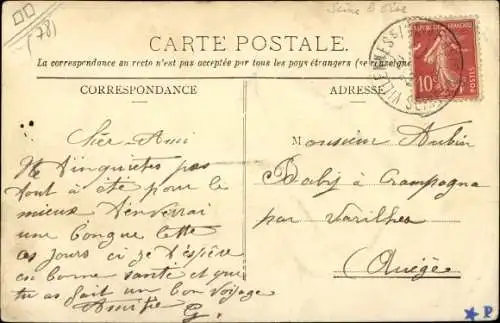 (78)
Seine & Oise
CARTE POSTALE.
La correspondance au recto n'est pas acceptée par tous les pays étrangers (se renseigner
CORRESPONDANCE
ADRESSE
VILLENNES-S
REPUBLIQUE FRANÇAISE
10
POSTES
Cher Ami
Ne t'inquietes pas
tout à été pour le
mieux t'enverrai
une longue lettre
ces jours ci je t'espère
en bonne santé et que
tu as fait un bon voyage
Amitié
G.
Monsieur Aubin
Baby à Crampagna
par Varilhes
(Ariège
P